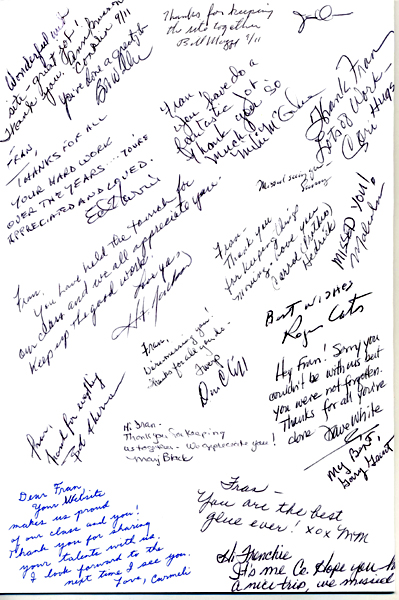 Wonderful
site great job!
Thank you.
9/11
You've done a great job
Thanks for keeping
the site together
Bill 9/11
Fran,
you have do a
fantastic job.
Thank you so
much
Mike
Thank Fran
Lots of Work -
Hugs
FRAN,
THANKS FOR ALL
YOUR HARD WORK
OVER THE YEARS.... YOU'RE
APPRECIATED AND LOVED.
Missed seeing you
MISSED YOU!
Malcolm
Fran,
You have held the torch for
our class and we all appreciate you.
Keep up the good work.
Love ya,
Fran -
Thank you
for keeping things
moving. Love you
Carrol
Best wishes
Roger
Fran,
Were missing you!
Thanks for all you do -
Hey Fran! Sorry you
couldn't be with us but
you were not forgotten.
Thanks for all you've
done Dave White
Fran,
Thanks for everything
My Best,
Gary
Hi Fran -
Thank you for keeping
us together - We appreciate you!
Mary Black
Dear Fran,
Your Website
makes us proud
of our class and you!
Thank you for sharing
your talents with us.
I look forward to the
next time I see you.
Love, Carmeli
Fran -
You are the best
glue ever! xox MM
Hi Frenchie
It's me Co. Hope you
a nice trip, we missed